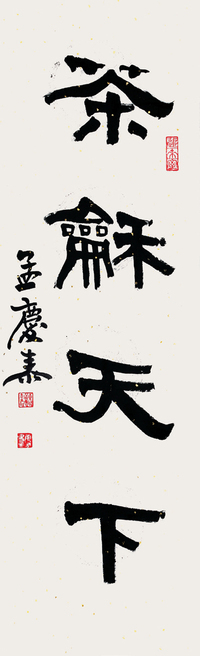 茶龢天下
孟慶泰